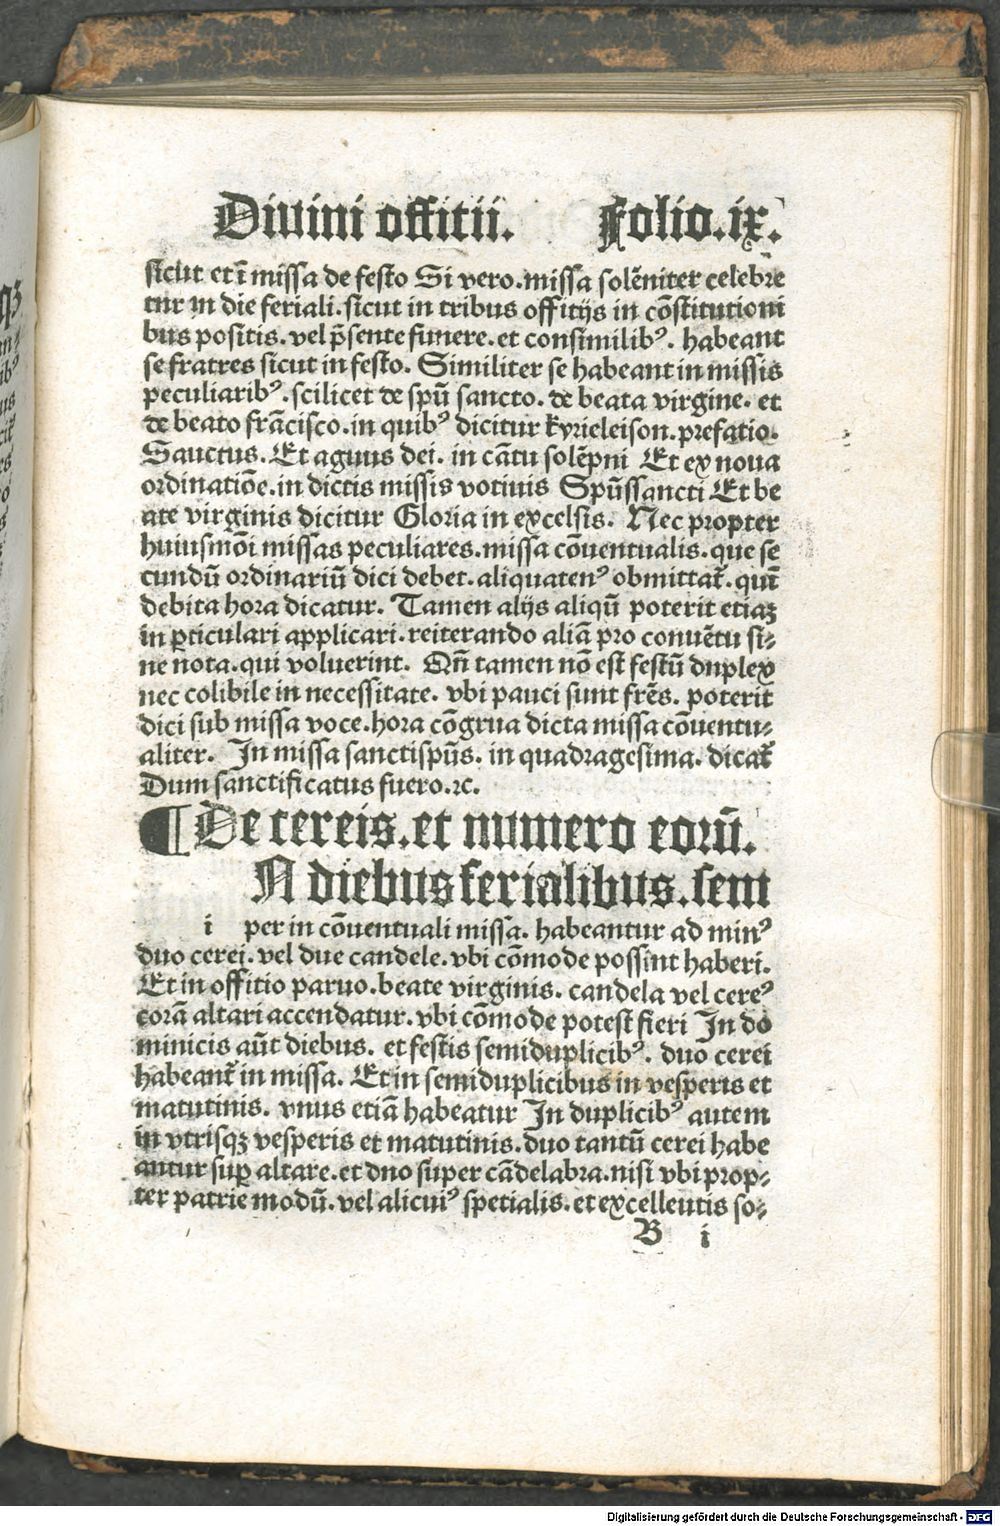 Diuini offitii. Folio.ix.
sicut et ī missa de festo Si vero.missa solēniter celebre
tur in die feriali.sicut in tribus offitijs in cōstitutioni
bus positis.vel p̄sente funere.et consimilibꝰ. habeant
se fratres sicut in festo. Similiter se habeant in missis
peculiaribꝰ.scilicet de spū sancto. de beata virgine. et
de beato frācisco.in quibꝰ dicitur kyrieleison.prefatio.
Sauctus. Et aguus dei. in cātu solēpni Et ex noua
ordinatiōe.in dictis missis votiuis Spūssancti Et be
ate virginis dicitur Gloria in excelsis. Nec propter
huiusmōi missas peculiares.missa cōuentualis.que se
cundū ordinariū dici debet.aliquatenꝰ obmittat̄.quī
debita hora dicatur. Tamen alijs aliqū poterit etiaꝫ
in ꝑticulari applicari.reiterando aliā pro conuētu si⸗
ne nota.qui voluerint. Qn̄ tamen nō est festū dnplex
nec colibile in necessitate. vbi pauci sunt frēs. poterit
dici sub missa voce.hora cōgrua dicta missa cōuentu⸗
aliter. In missa sanctispūs. in quadragesima. dicat̄
Dum sanctificatus fuero.ꝛc.
¶ De cereis.et numero eorū.
N diebus ferialibus.sem
i per in cōuentuali missa. habeantur ad minꝰ
duo cerei.vel due candele.vbi cōmode possint haberi.
Et in offitio paruo.beate virginis. candela vel cereꝰ
corā altari accendatur.vbi cōmode potest fieri In do
minicis aūt diebus. et festis semiduplicibꝰ. duo cerei
habeant̄ in missa. Et in semiduplicibus in vesperis et
matutinis. vnus etiā habeatur In duplicibꝰ autem
in vtrisqꝫ vesperis et matutinis.duo tantū cerei habe
antur suꝑ altare.et dno super cādelabra.nisi vbi prop⸗
ter patrie modū.vel alicuiꝰ spetialis.et excelleutis so⸗
B i
qꝫ
Digitalisierung gefördert durch die Deutsche Forschungsgemeinschaft - DFG